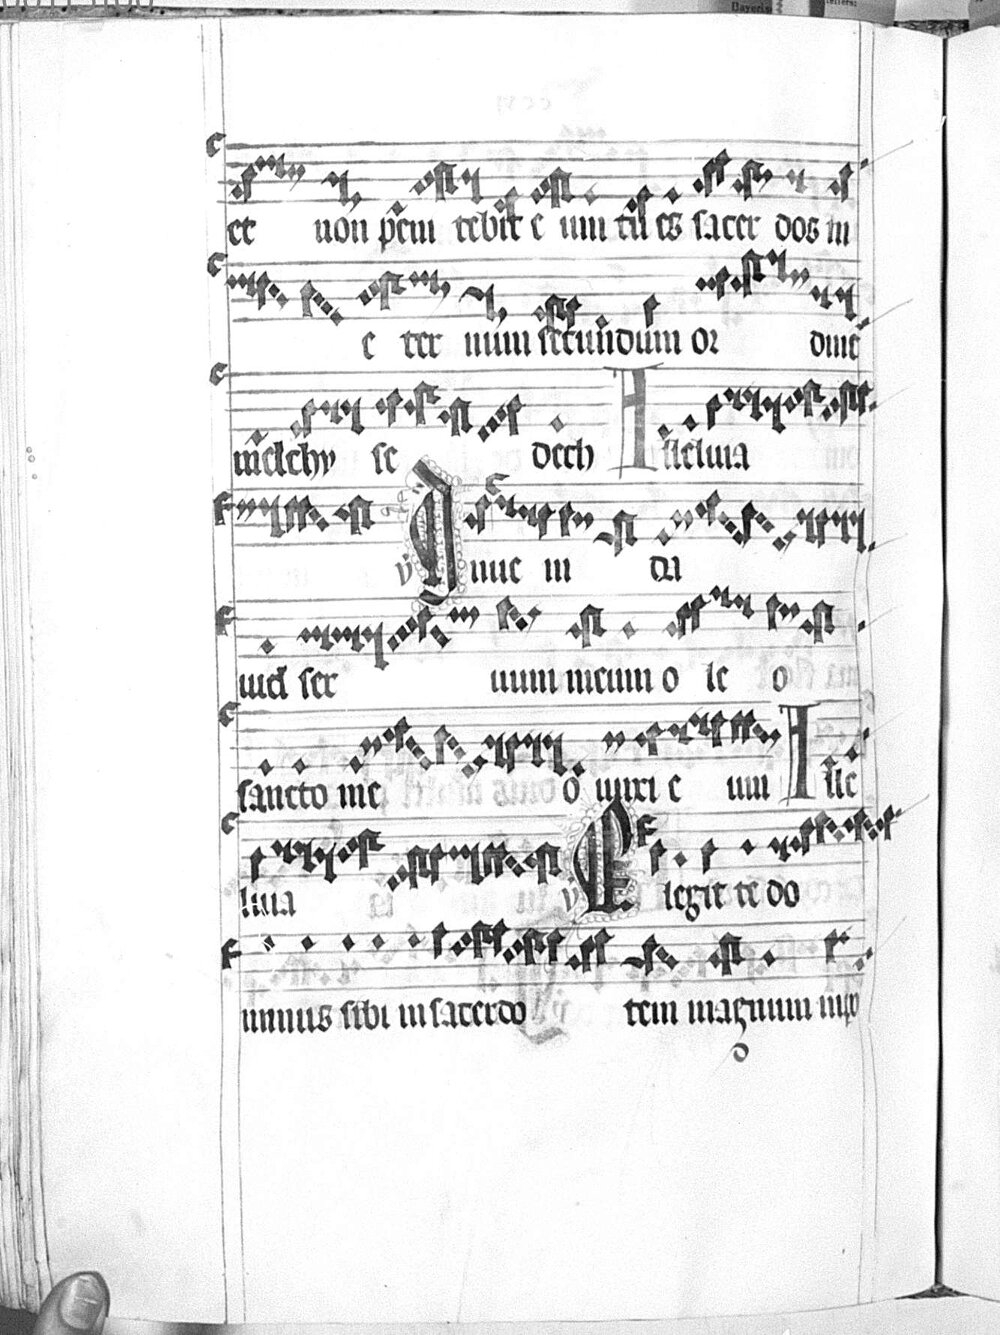 et non pēni tebit e um tu es sacer dos in
e ter num secundum or dinē
melchy se dech Alleluia
ꝟ Inue ni da
uid ser uum meum o le o
sancto me o unxi e um Alle
luia ꝟ Elegit te do
minus sibi in sacerdo tem magnum in pp
o